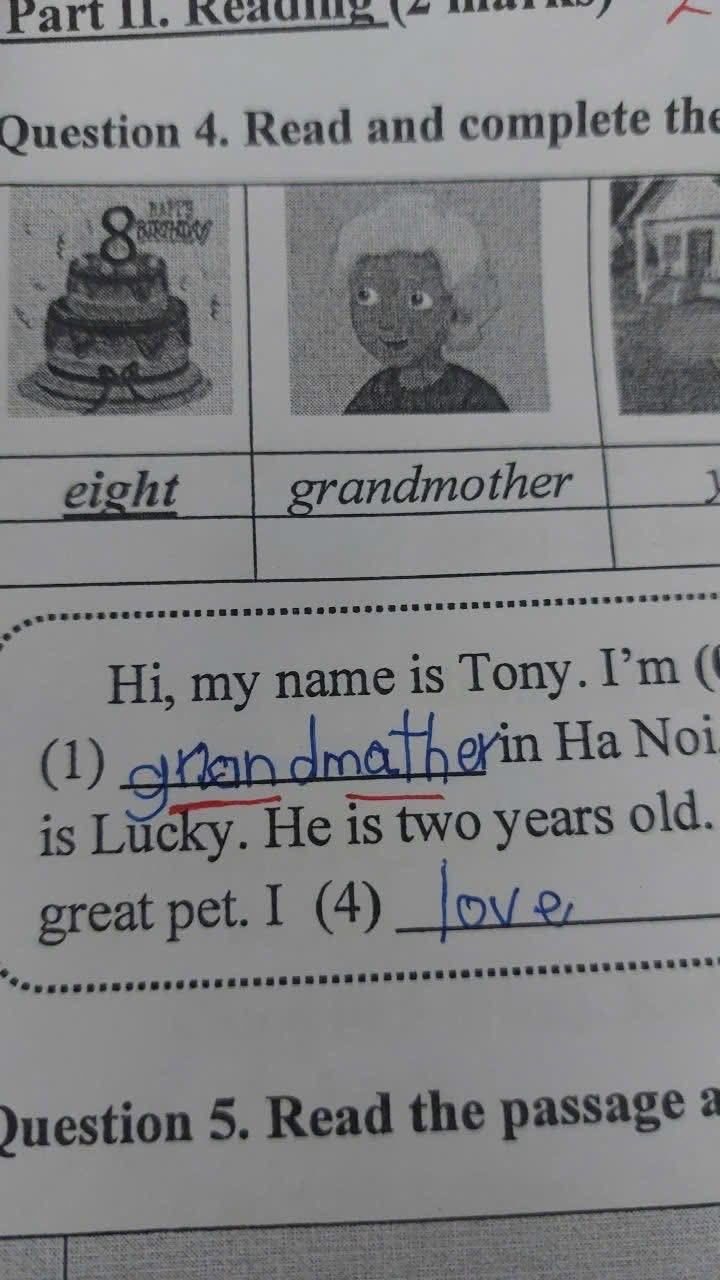 Part II. Reading (2 marks)
Question 4. Read and complete the
8 HAPPY BIRTHDAY
eight grandmother
Hi, my name is Tony. I'm (
(1) gnandmather in Ha Noi.
is Lucky. He is two years old.
great pet. I (4) love
Question 5. Read the passage a